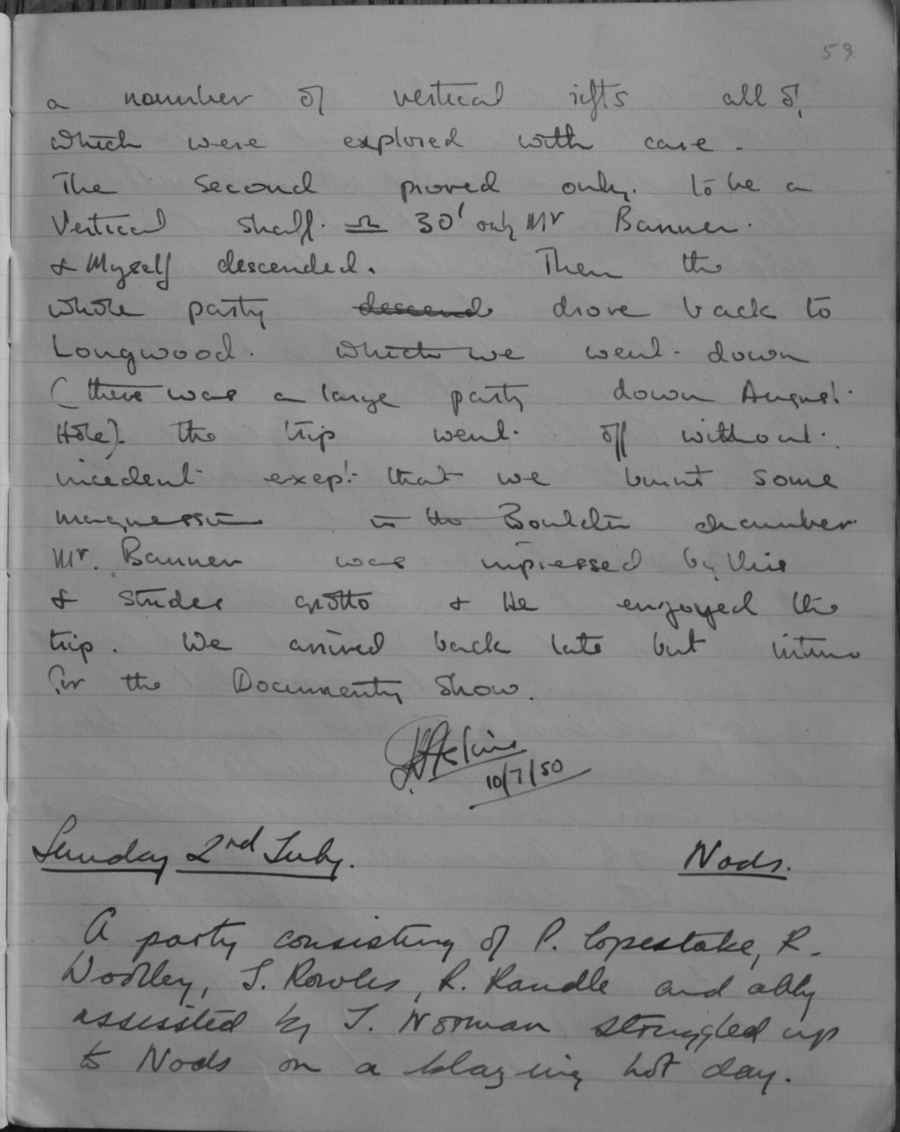 59
a nomnber of vertical rifts all of
which were explored with care.
The second proved only. to be a
Vertical shaft. 30' only Mr Banner.
& Myself descended. Then the
whole party descend drove back to
Longwood. which we went down
(there was a large party down August
Hole). the trip went off without.
incedent exept that we burnt some
in the Boulder chamber
Mr. Banner was impressed by this
& grotto & He enjoyed the
trip. We arrived back late but intime
for the Documenty Show.
10/7/50
Sunday 2nd July. Nods.
A party consisting of P. Copestake, R.
Woolley, J. Rowles, R. Randle and ably
assisted by J. Norman struggled up
to Nods on a blazing hot day.